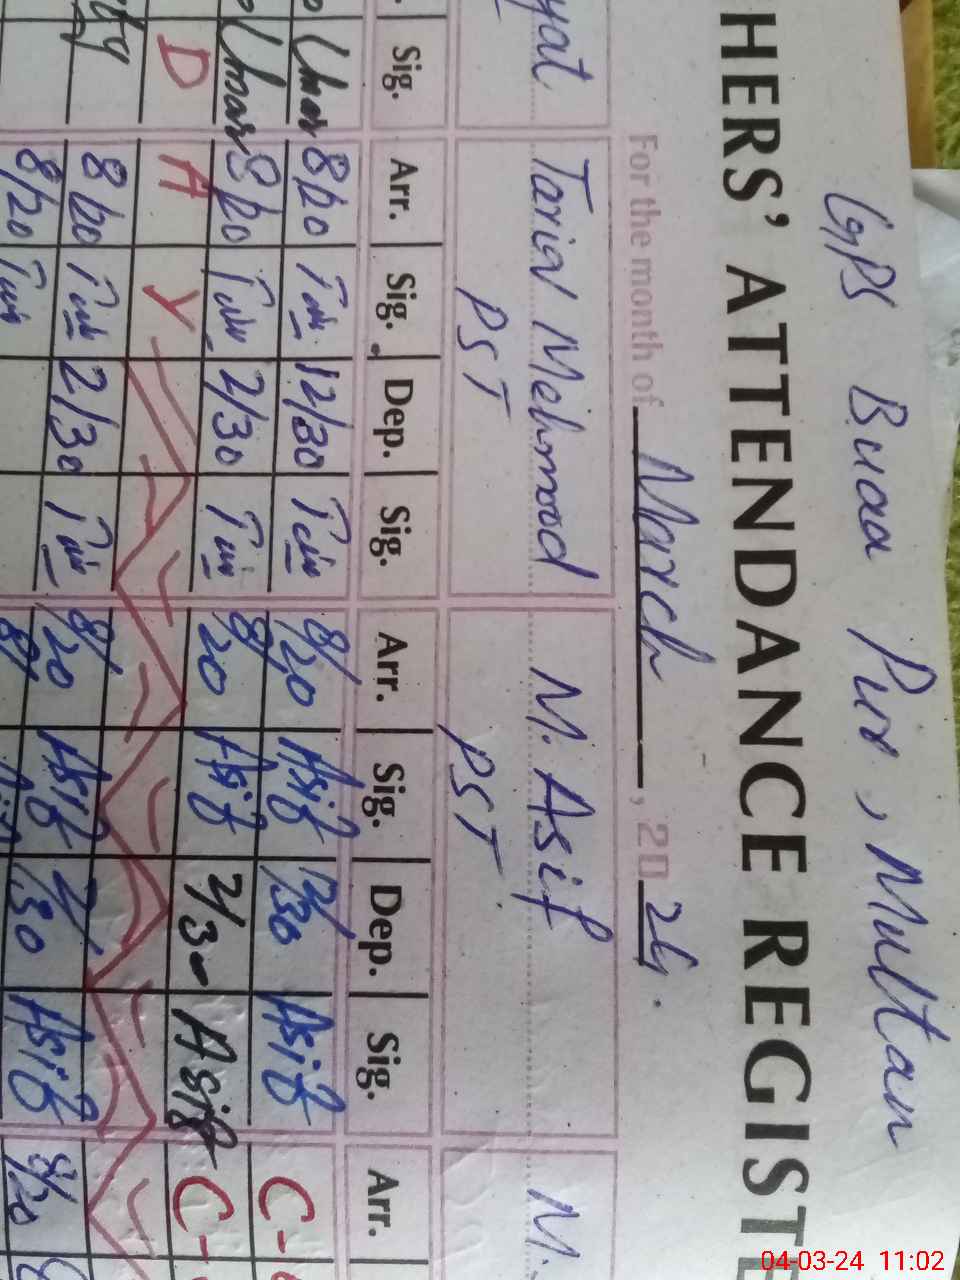 GPS Buaa Pur, Multan
HERS' ATTENDANCE REGISTE
For the month of March, 2024.
yat Tariq Mehmood M. Asif M.
PST PST
Sig. Arr. Sig. Dep. Sig. Arr. Sig. Dep. Sig. Arr.
8/20 12/30 8/20 Asif 12/30 Asif C-
8/20 2/30 8/20 Asif 2/30 Asif C-
D A Y
8/20 2/30 8/20 Asif 2/30 Asif 8/20
8/20
04-03-24 11:02